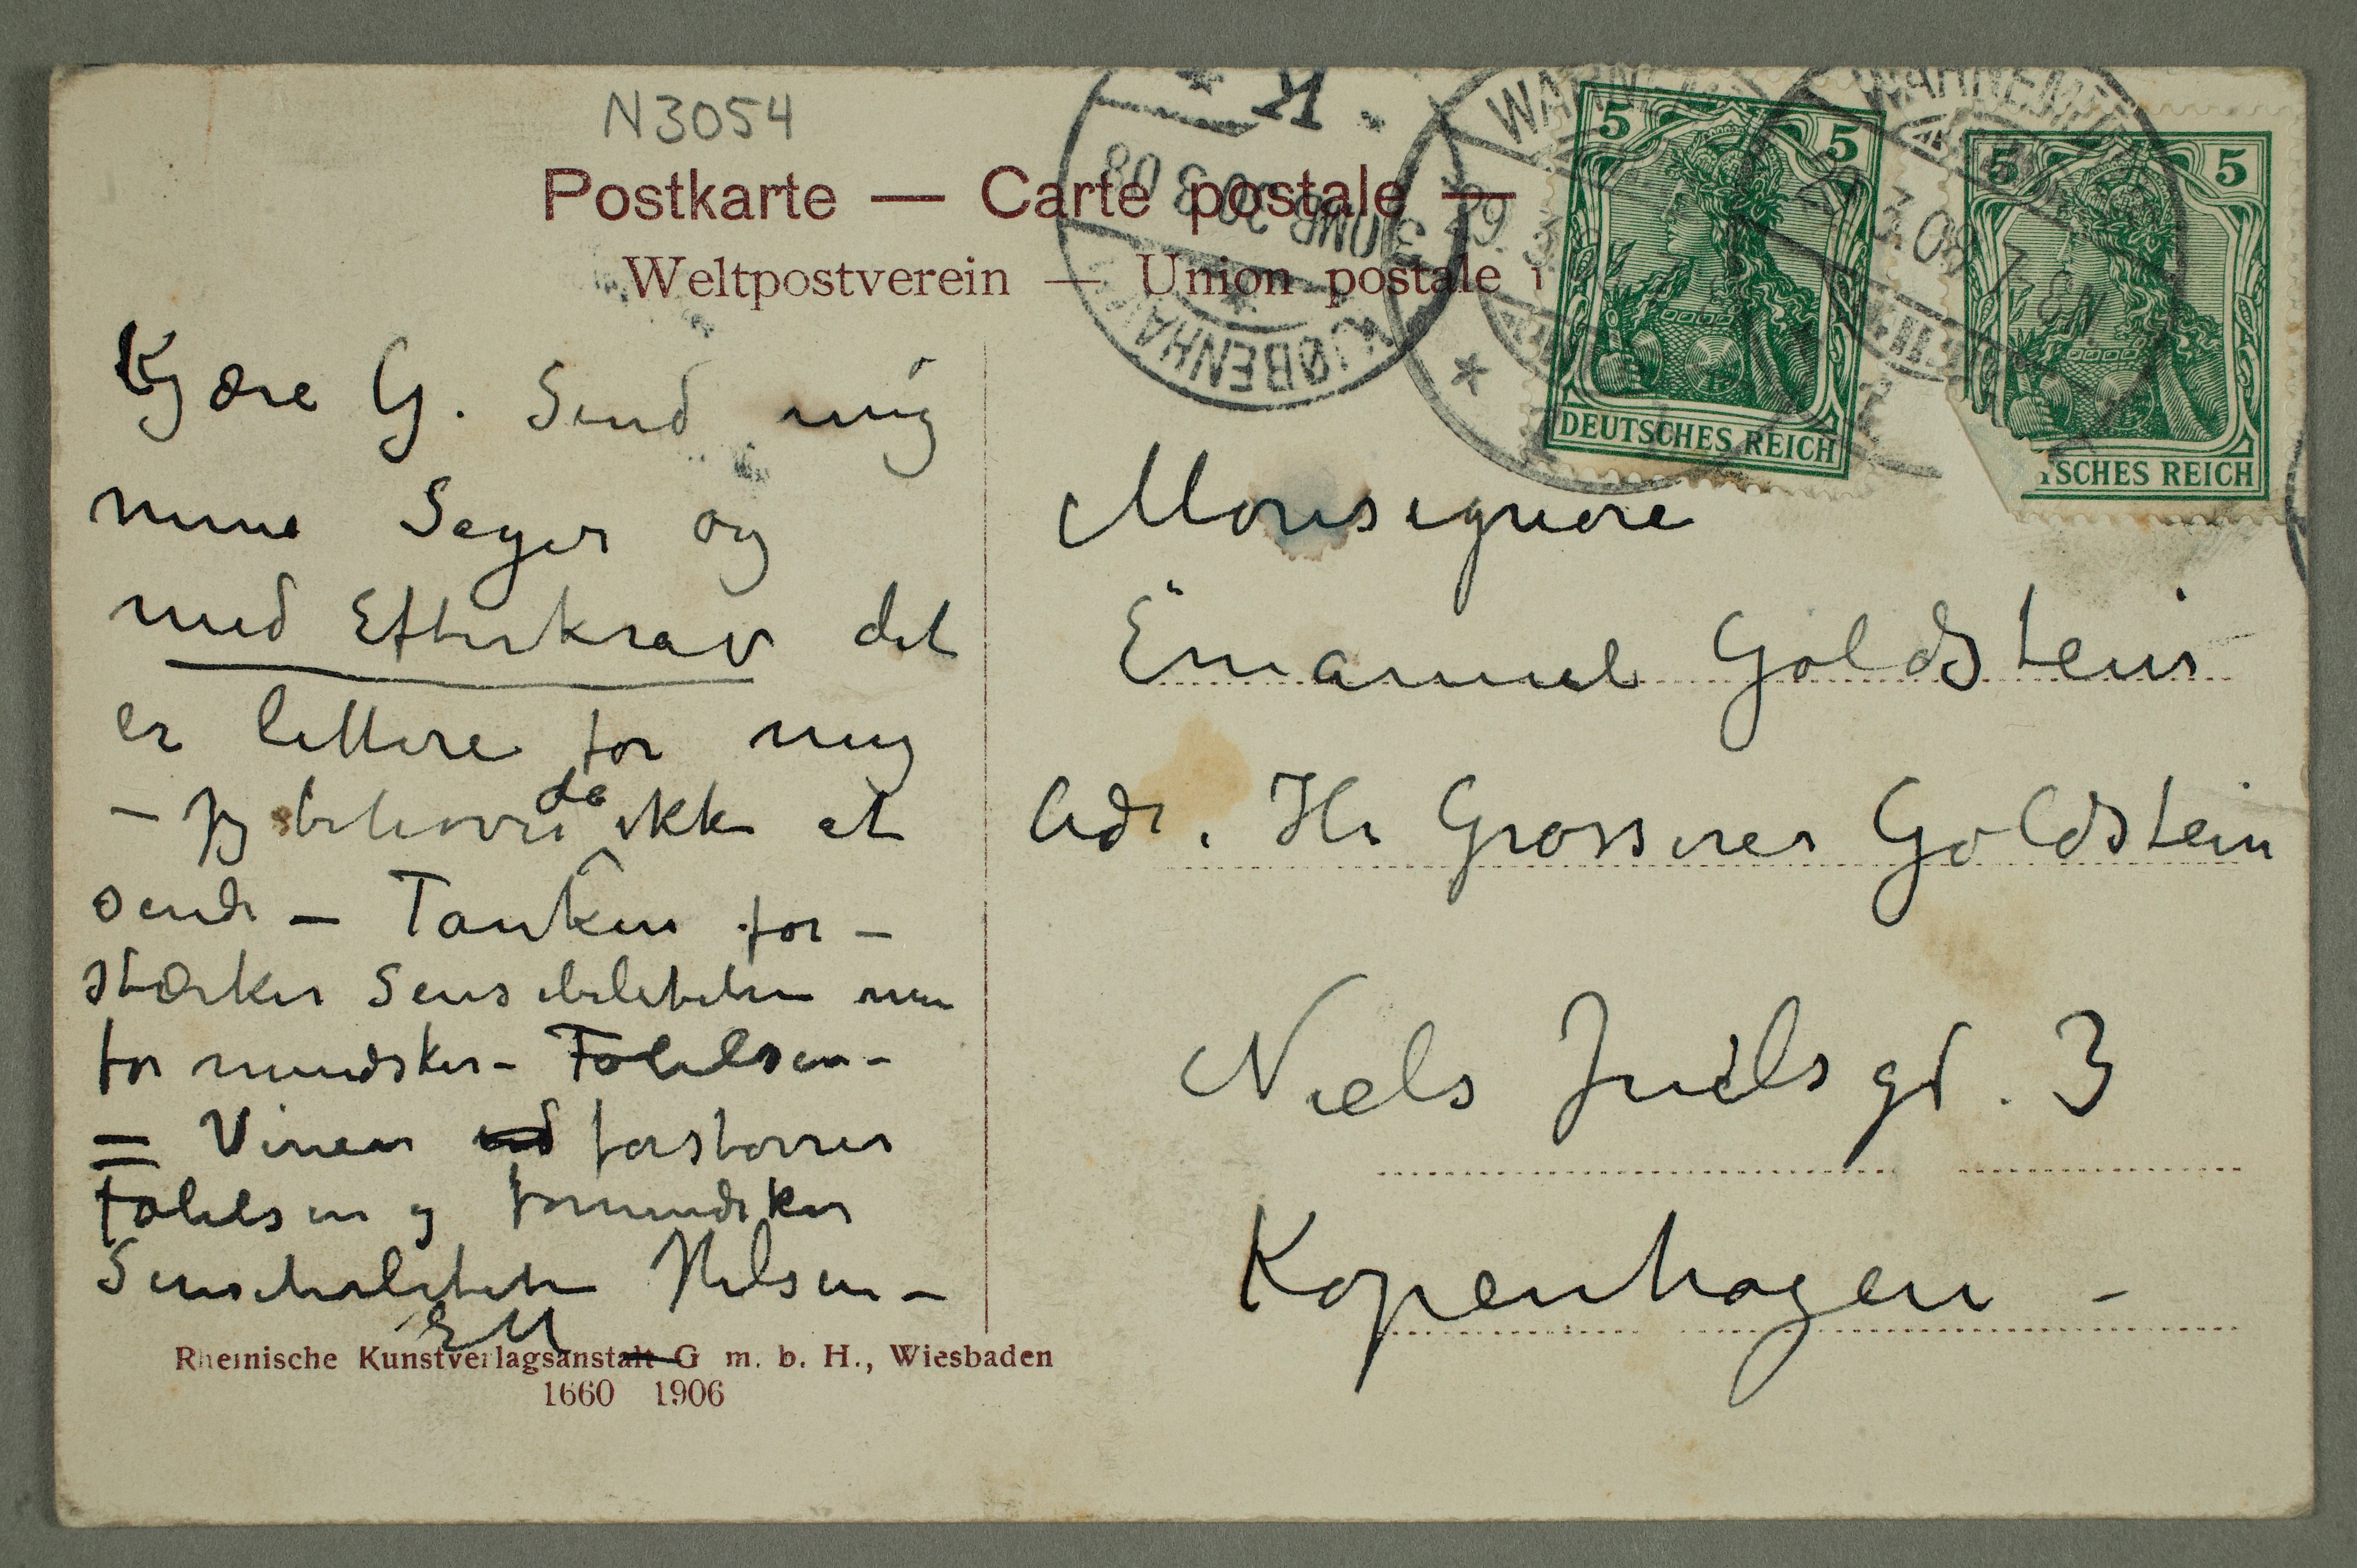 N3054
Postkarte — Carte postale —
Weltpostverein — Union postale
Kjære G. Send mig
mine Sager og
med Efterkrav det
er lettere for mig
– Jeg behøver da ikke at
sende – Tanken for-
stærker Sensibiliteten men
formindsker – Følelsen –
= Vinen forstørrer
Følelsen og formindsker
Sensibiliteten Hilsen –
EM
Rheinische Kunstverlagsanstalt G. m. b. H., Wiesbaden
1660 1906
KJØBENHAVN
3 OMB. 30 3 08
K.
5 5
DEUTSCHES REICH
5 5
TSCHES REICH
Monsignore
Emanuel Goldstein
Adr. Hr Grosserer Goldstein
Niels Juels gd. 3
Kopenhagen –